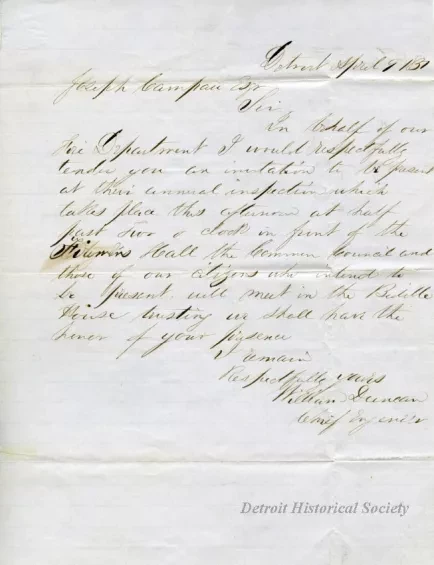 Detroit April 9
Joseph Campau Esqr
Sir
In behalf of our
Fire Department I would respectfully
tender you an invitation to be present
at their annual inspection which
takes place this afternoon at half
past two o clock in front of the
Firemens Hall the Common Council and
those of our citizens who intend to
be present will meet in the Biddle
House trusting we shall have the
honor of your presence
I remain
Respectfully yours
William Duncan
Chief Engineer
Detroit Historical Society